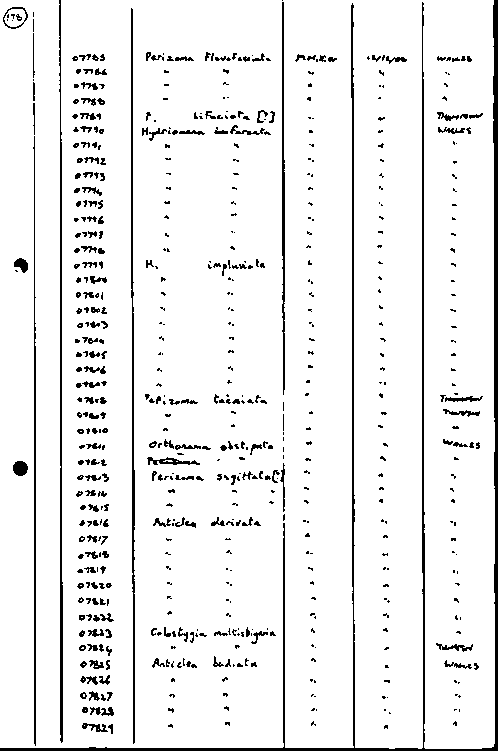 178
07785 Perizoma flavofasciata 12/12/00 WALLES
07786 " " " " "
07787 " " " " "
07788 " " " " "
07789 P. bifaciata [?] " " THOMPSON
07790 Hydriomena " " WALLES
07791 " " " " "
07792 " " " " "
07793 " " " " "
07794 " " " " "
07795 " " " " "
07796 " " " " "
07797 " " " " "
07798 " " " " "
07799 H. impluviata " " "
07800 " " " " "
07801 " " " " "
07802 " " " " "
07803 " " " " "
07804 " " " " "
07805 " " " " "
07806 " " " " "
07807 " " " " "
07808 Perizoma taeniata " " THOMPSON
07809 " " " " THOMPSON
07810 " " " " "
07811 Orthonama obstipata " " WALLES
07812 " " " " "
07813 Perizoma sagittata [?] " " "
07814 " " " " " "
07815 " " " " " "
07816 Anticlea derivata " " "
07817 " " " " "
07818 " " " " "
07819 " " " " "
07820 " " " " "
07821 " " " " "
07822 " " " " "
07823 Colostygia multistrigaria " " "
07824 " " " " THOMPSON
07825 Anticlea badiata " " WALLES
07826 " " " " "
07827 " " " " "
07828 " " " " "
07829 " " " " "